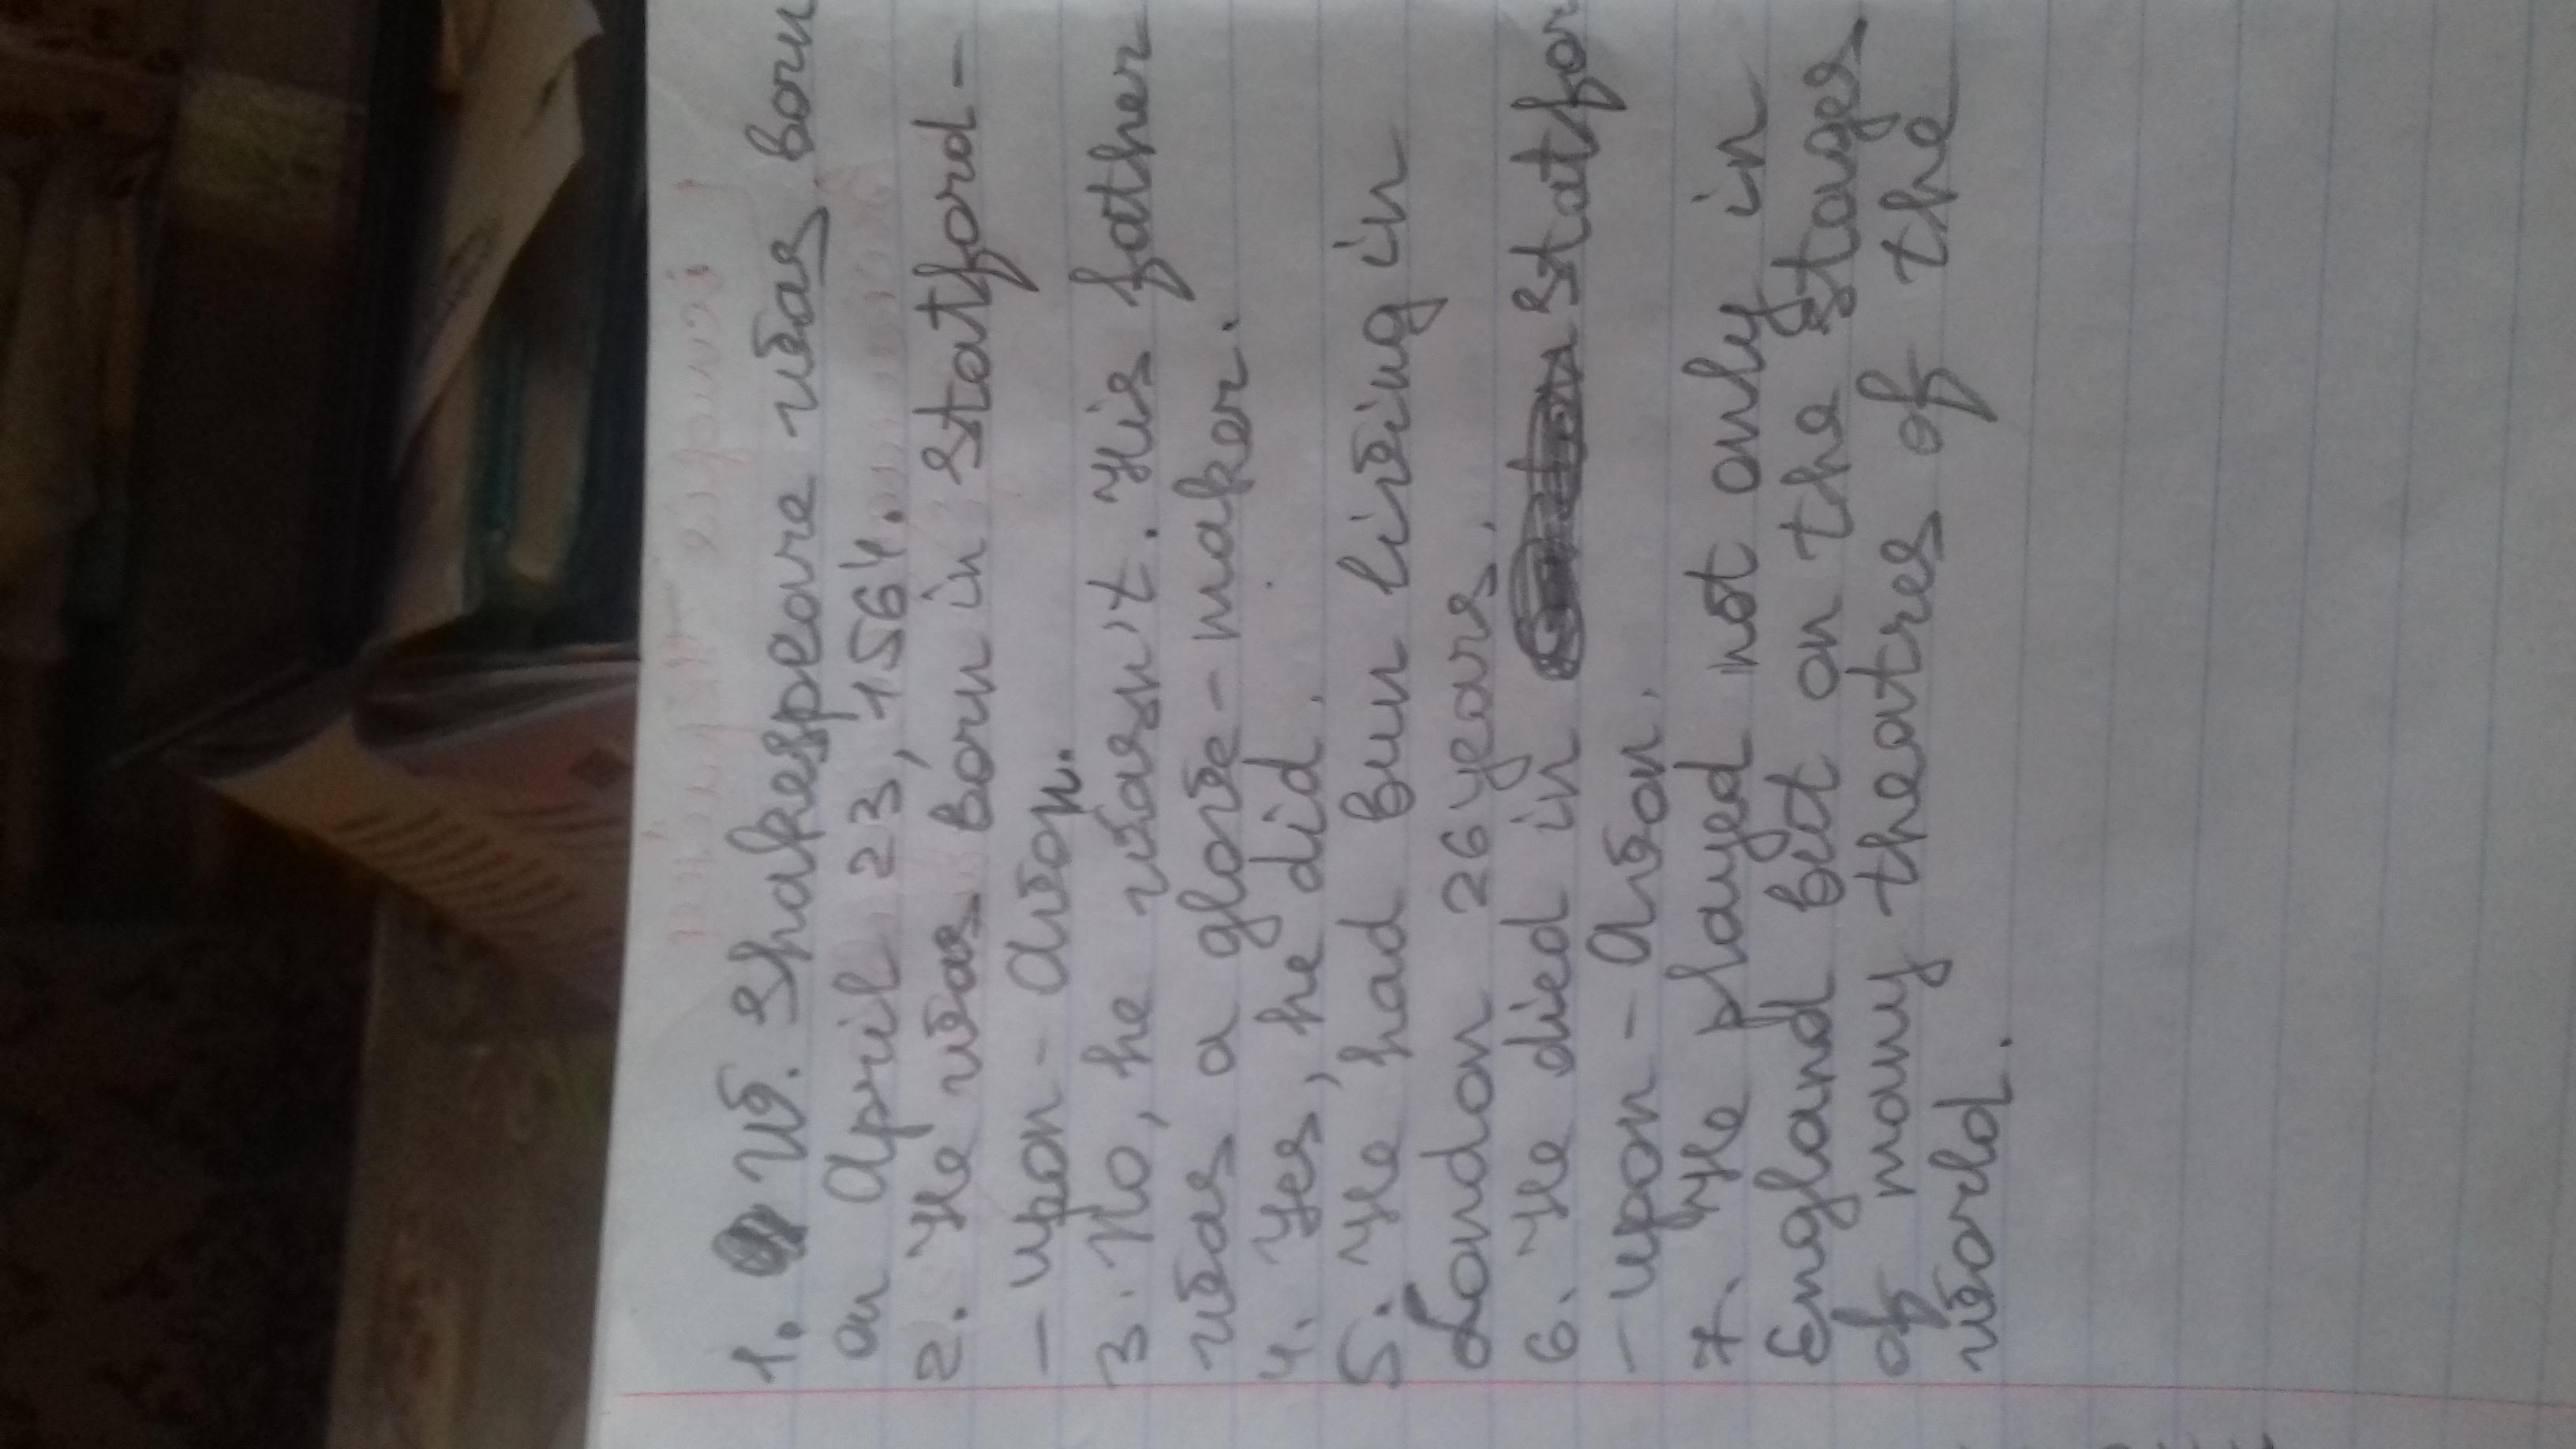 1. W. Shakespeare was born
on April 23, 1564.
2. He was born in Statford-
-upon-Avon.
3. No, he wasn't. His father
was a glove-maker.
4. Yes, he did.
5. He had bun living in
London 26 years.
6. He died in Statfor
-upon-Avon.
7. He played not only in
England but on the stages
of many theatres of the
world.